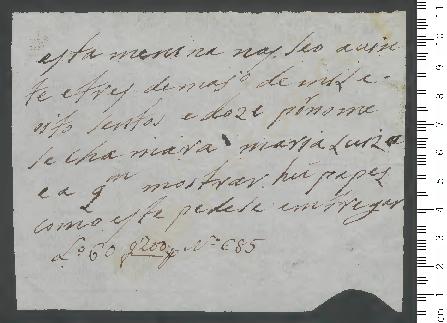 esta menina nasseo a vin
te e tres de março de mil e
oito sentos e doze p. nome
se chamara maria Luiza
e a qm mostrar hũ papel
como este pedese entregar
Lo 60 g 200 No 685